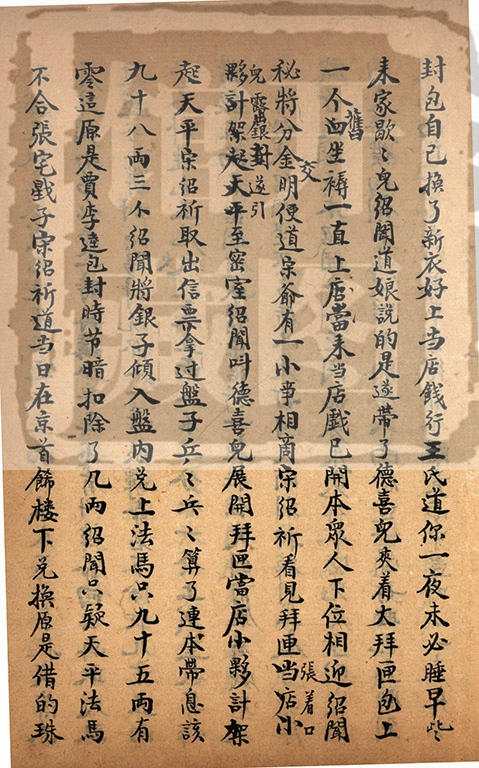 封包自己換了新衣好上当店餞行王氏道你一夜未必睡早些
来家歇〻兒紹聞道娘説的是遂带了德喜兒夾着大拜匣包上
一个舊血坐褥一直上店當来当店戲已開本衆人下位相迎紹聞
秘將分金交明便道宗爺有一小事相商宗紹祈看見拜匣当店小張着口
兒露出銀封遂引
夥計架起天平至密室紹聞叫德喜兒展開拜匣當店小夥計架
起天平宗紹祈取出信票拿过盤子乒〻乓〻算了連本带息該
九十八両三个紹聞將銀子傾入盤内兑上法馬只九十五両有
零這原是賈李逵包封時节暗扣除了几両紹聞只疑天平法馬
不合張宅戲子宗紹祈道当日在京首餙楼下兑换原是借的珠